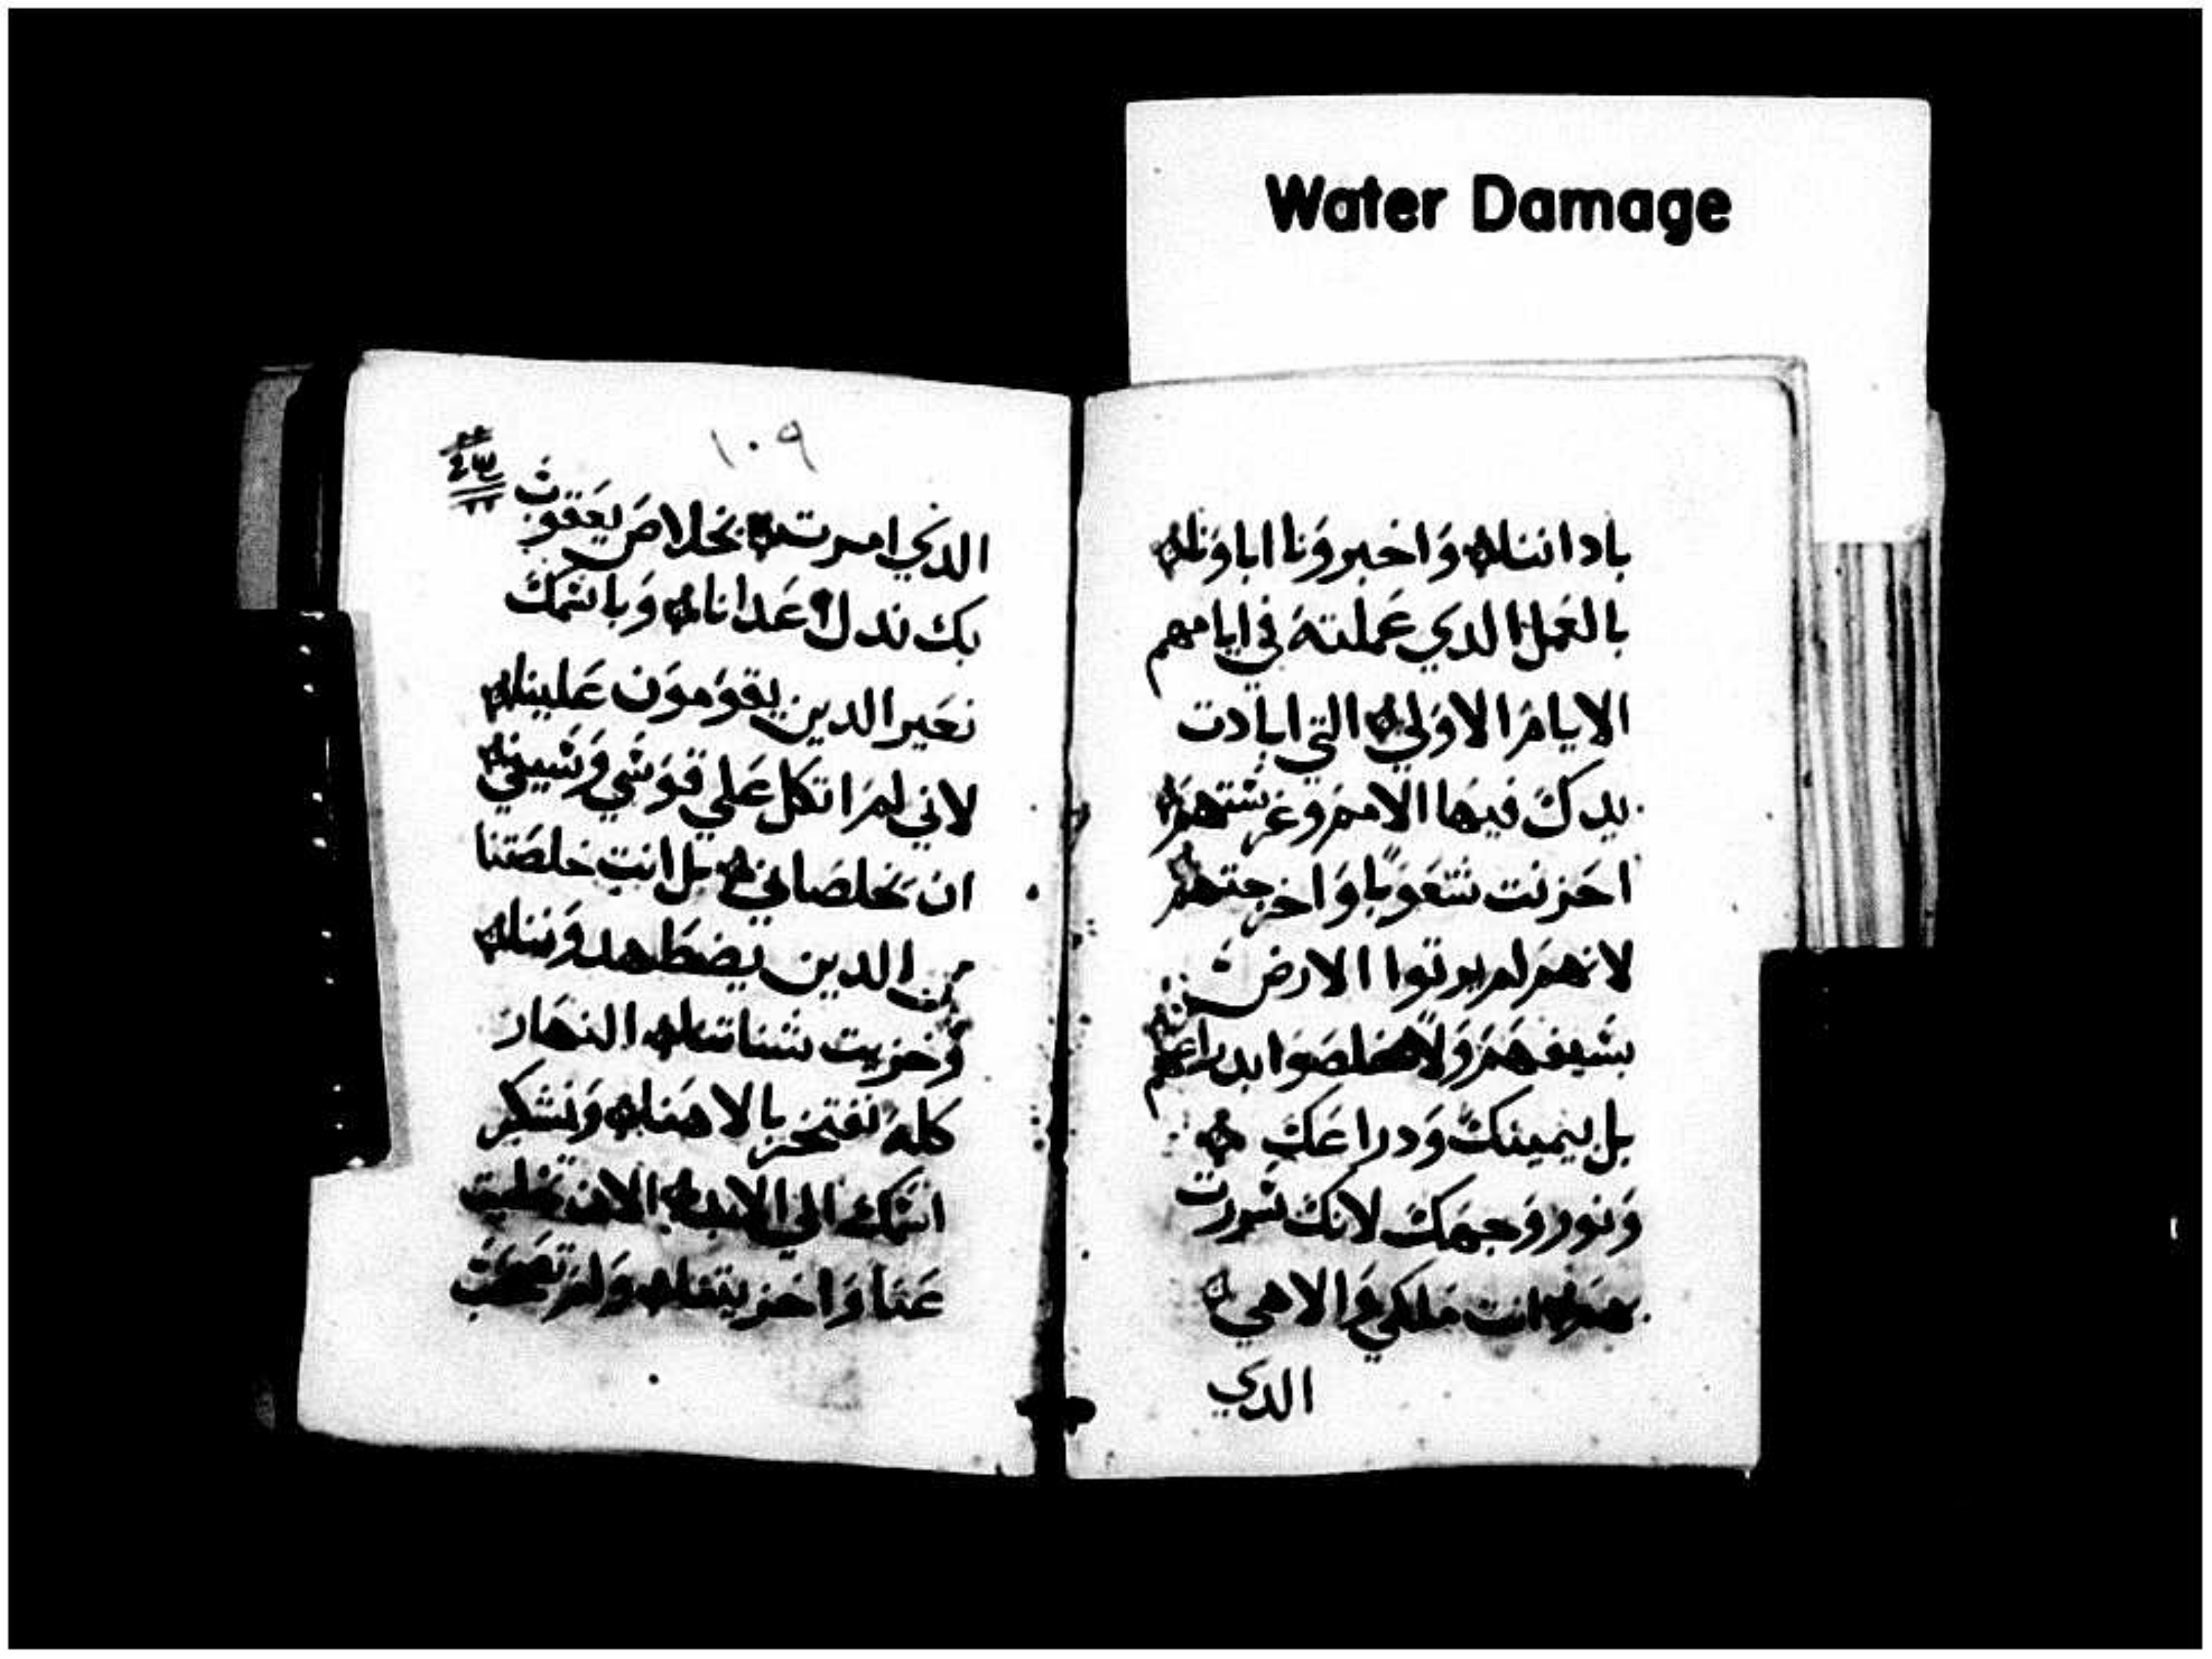 Water Damage
باداننا واخبرونا اباونا
بالعمل الدي عملته في ايامهم
الايام الاولي التي ابادت
يدك فيها الامم وغرستهم
احزنت شعوبا واخرجتهم
لانهم لم يرتوا الارض
بسيفهم ولا خلصوا بدراعهم
بل يمينك ودراعك
ونور وجهك لانك سررت
بهم انت ملكي والاهي
الدي
١٠٩
٤٣
الدي امرت بخلاص يعقوب
بك ندل اعدانا وباسمك
نعير الدين يقومون علينا
لاني لم اتكل علي قوسي وسيفي
ان يخلصاني بل انت خلصتنا
من الدين يضطهدوننا
وخزيت شناتنا النهار
كله نفتخر بالاهنا ونشكر
اسمك الي الابد الان تخليت
عنا واخزيتنا ولم تصحب